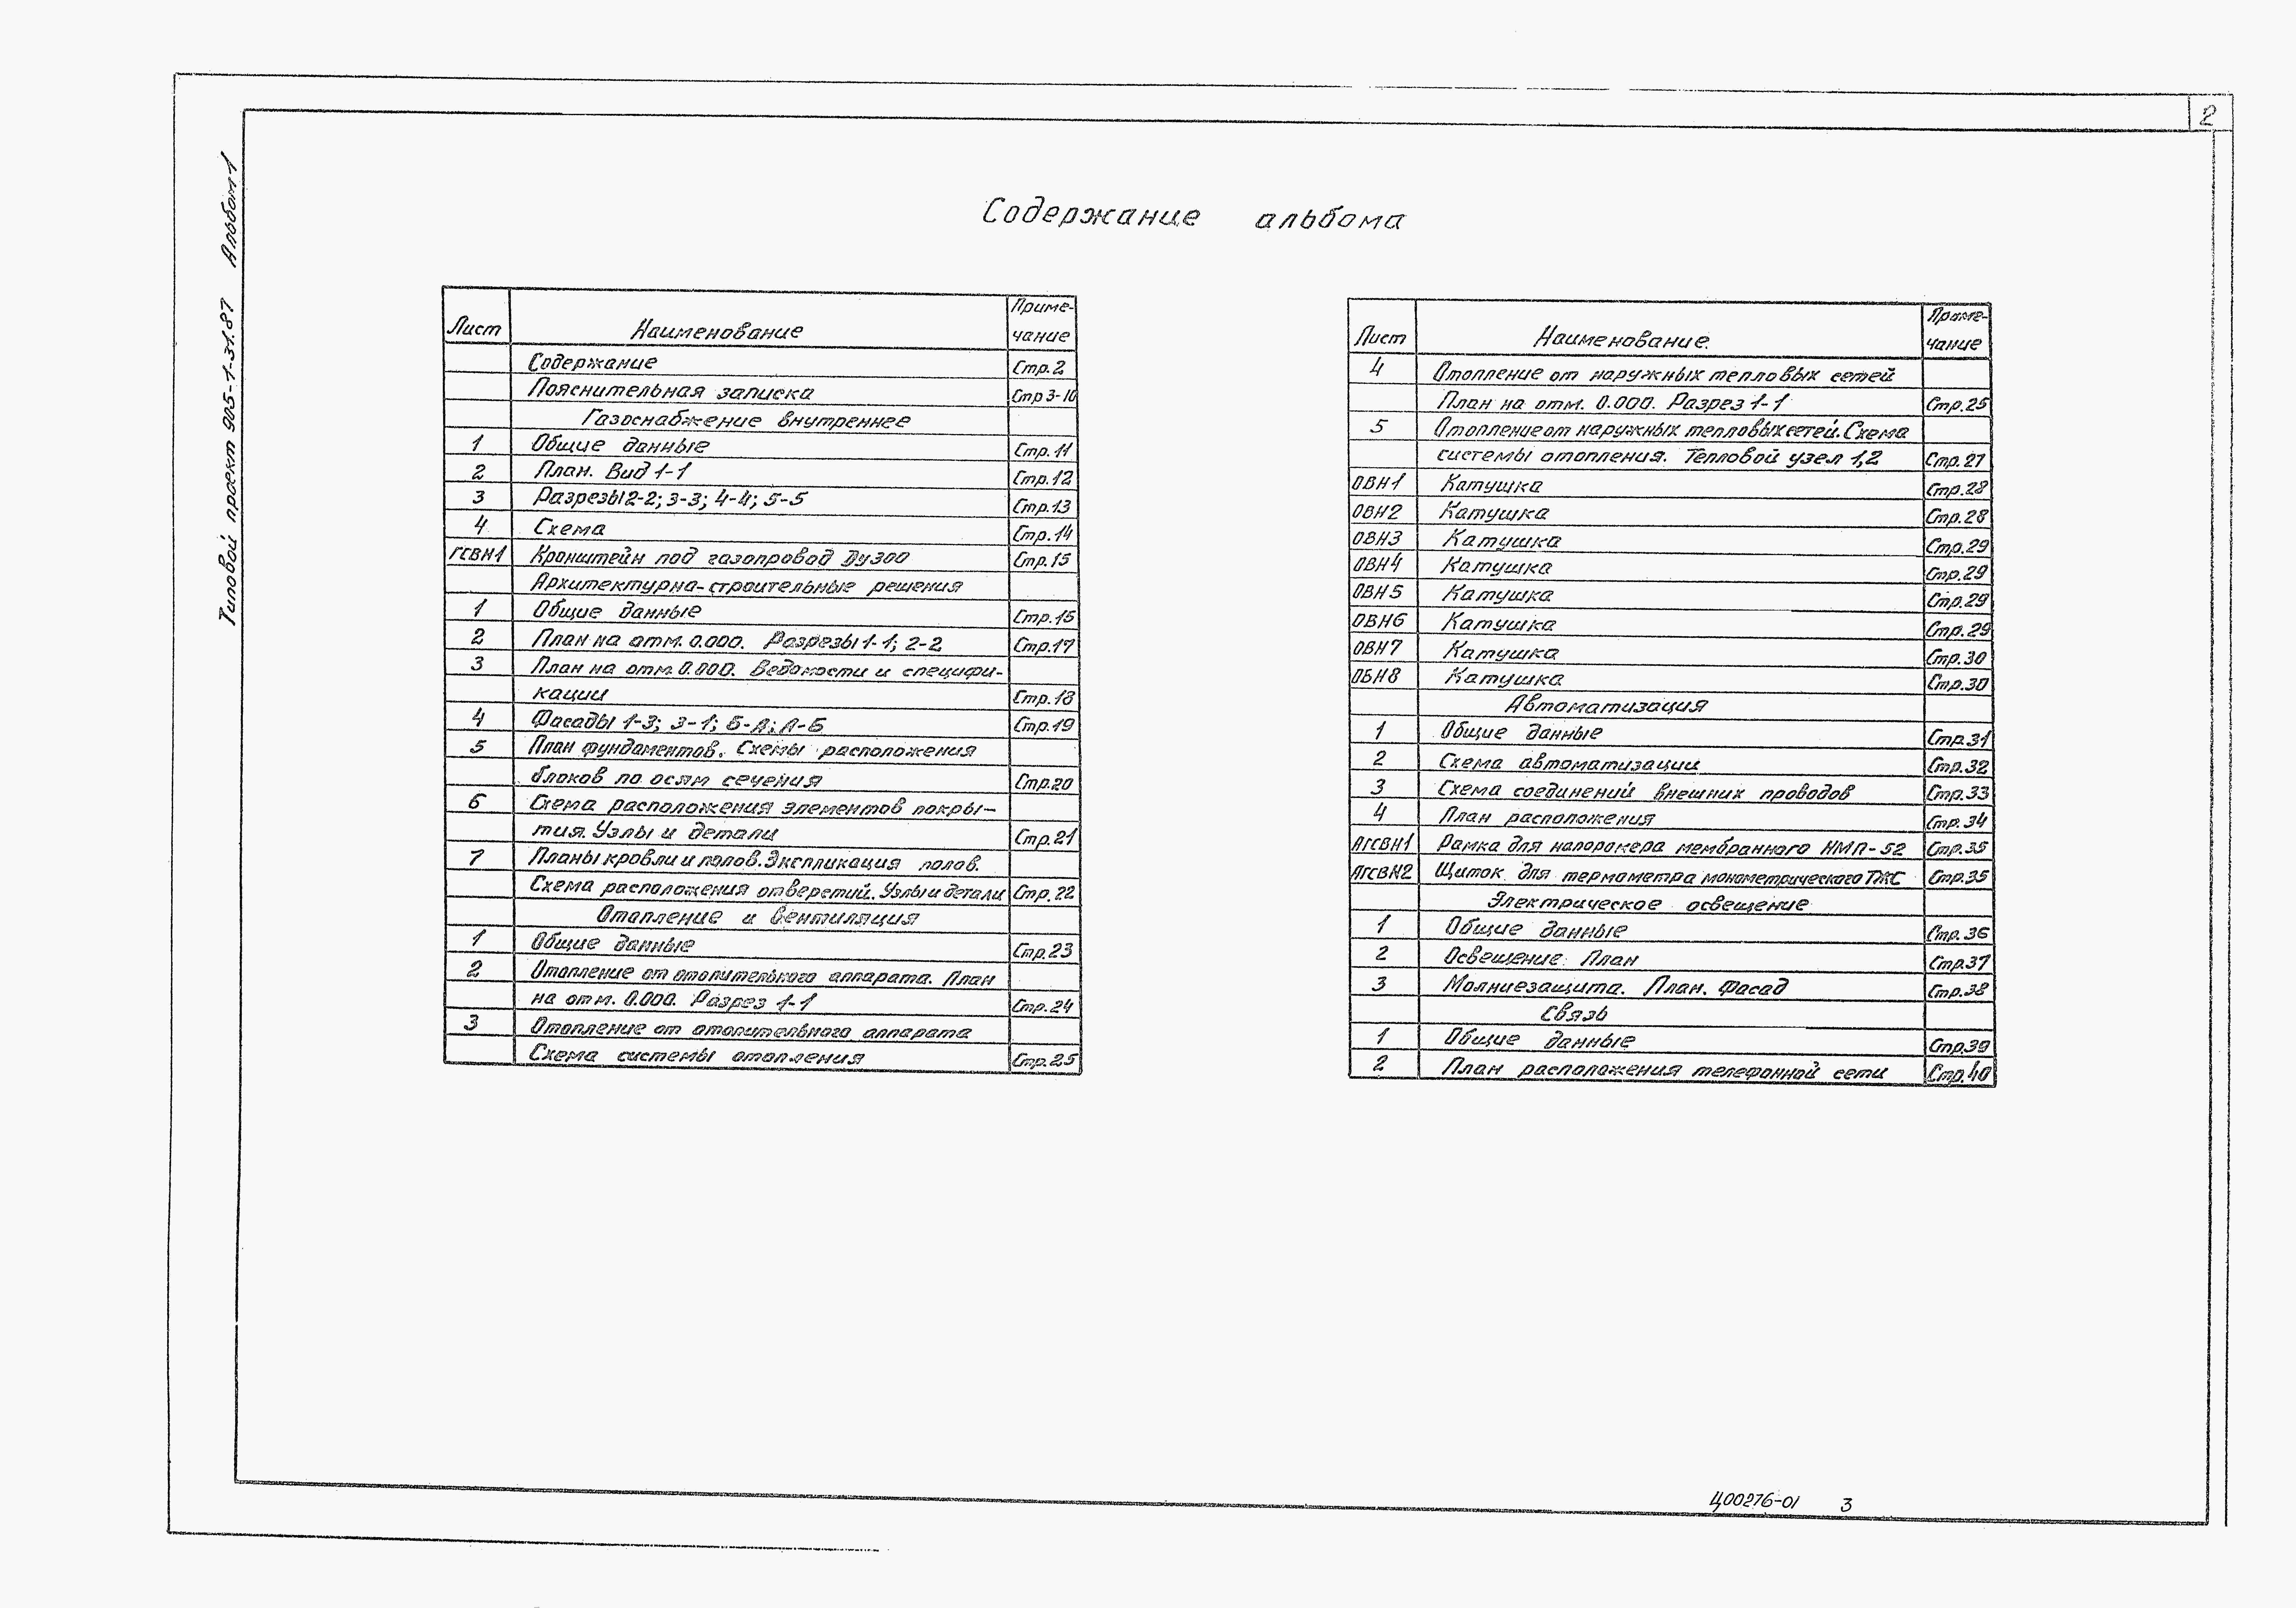 2
Типовой проект 905-1-31.87 Альбом 1
Содержание альбома
Лист Наименование Приме-
чание
Содержание Стр.2
Пояснительная записка Стр 3-10
Газоснабжение внутреннее
1 Общие данные Стр.11
2 План. Вид 1-1 Стр.12
3 Разрезы 2-2; 3-3; 4-4; 5-5 Стр.13
4 Схема Стр.14
ГСВН1 Кронштейн под газопровод Ду300 Стр.15
Архитектурно-строительные решения
1 Общие данные Стр.15
2 План на отм. 0.000. Разрезы 1-1; 2-2 Стр.17
3 План на отм. 0.000. Ведомости и специфи-
кации Стр.18
4 Фасады 1-3; 3-1; Б-А; А-Б Стр.19
5 План фундаментов. Схемы расположения
блоков по осям сечения Стр.20
6 Схема расположения элементов покры-
тия. Узлы и детали Стр.21
7 Планы кровли и полов. Экспликация полов.
Схема расположения отверстий. Узлы и детали Стр.22
Отопление и вентиляция
1 Общие данные Стр.23
2 Отопление от отопительного аппарата. План
на отм. 0.000. Разрез 1-1 Стр.24
3 Отопление от отопительного аппарата
Схема системы отопления Стр.25
Лист Наименование. Приме-
чание
4 Отопление от наружных тепловых сетей
План на отм. 0.000. Разрез 1-1 Стр.25
5 Отопление от наружных тепловых сетей. Схема
системы отопления. Тепловой узел 1,2 Стр.27
ОВН1 Катушка Стр.28
ОВН2 Катушка Стр.28
ОВН3 Катушка Стр.29
ОВН4 Катушка Стр.29
ОВН5 Катушка Стр.29
ОВН6 Катушка Стр.29
ОВН7 Катушка Стр.30
ОВН8 Катушка Стр.30
Автоматизация
1 Общие данные Стр.31
2 Схема автоматизации Стр.32
3 Схема соединений внешних проводов Стр.33
4 План расположения Стр.34
АГСВН1 Рамка для напоромера мембранного НМП-52 Стр.35
АГСВН2 Щиток для термометра монометрического ТЖС Стр.35
Электрическое освещение
1 Общие данные Стр.36
2 Освещение. План Стр.37
3 Молниезащита. План. Фасад Стр.38
Связь
1 Общие данные Стр.39
2 План расположения телефонной сети Стр.40
Ц00276-01 3